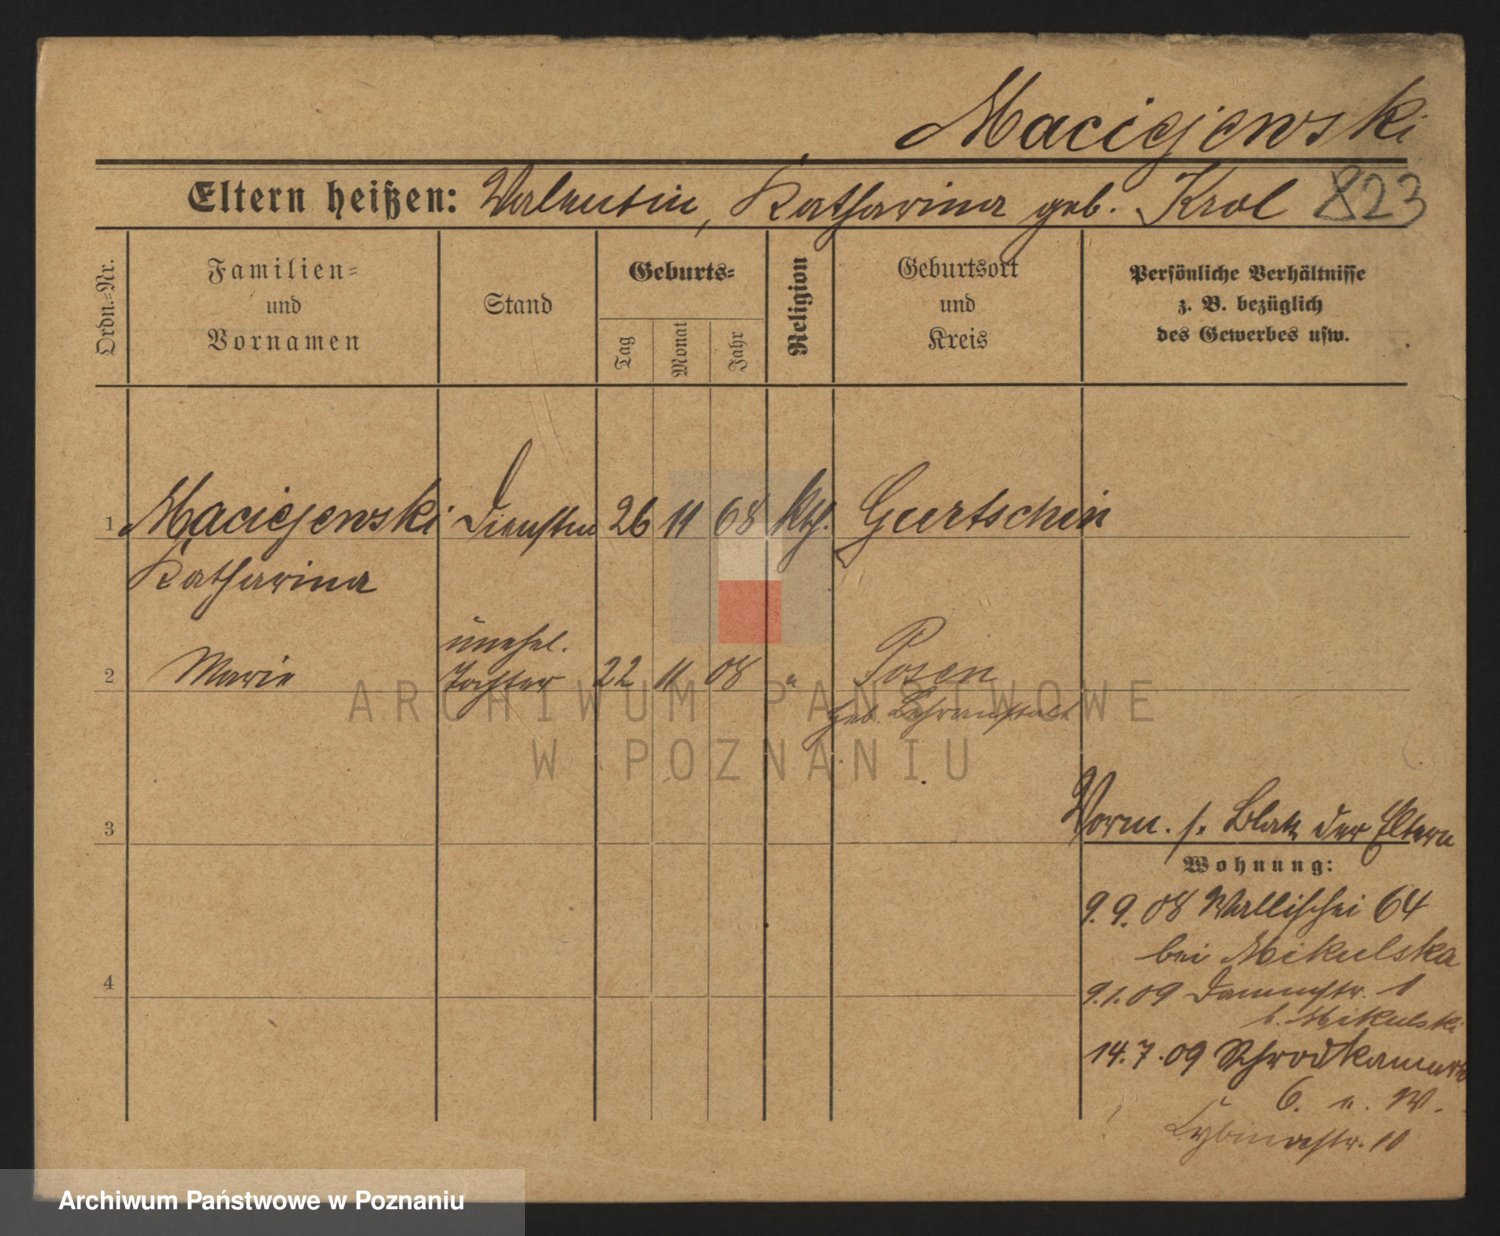 Maciejewski
Eltern heißen: Valentin, Katharina geb. Krol 823
Ordn.-Nr.
Familien-
und
Vornamen
Stand
Geburts-
Tag
Monat
Jahr
Religion
Geburtsort
und
Kreis
Persönliche Verhältnisse
z. B. bezüglich
des Gewerbes usw.
1 Maciejewski Dienstm 26 11 68 kth. Gurtschin
Katharina
unehel.
2 Marie Tochter 22 11 08 " Posen
Heb. Lehranstalt
ARCHIWUM PAŃSTWOWE
W POZNANIU
3
Vorm. s. Blatt der Eltern
Wohnung:
9.9.08 Wallischei 64
bei Mikulska
9.1.09 Dammstr. 1
b. Mikulski
4
14.7.09 Schrodkamarkt
6. a. W.
Cybinastr. 11
Archiwum Państwowe w Poznaniu